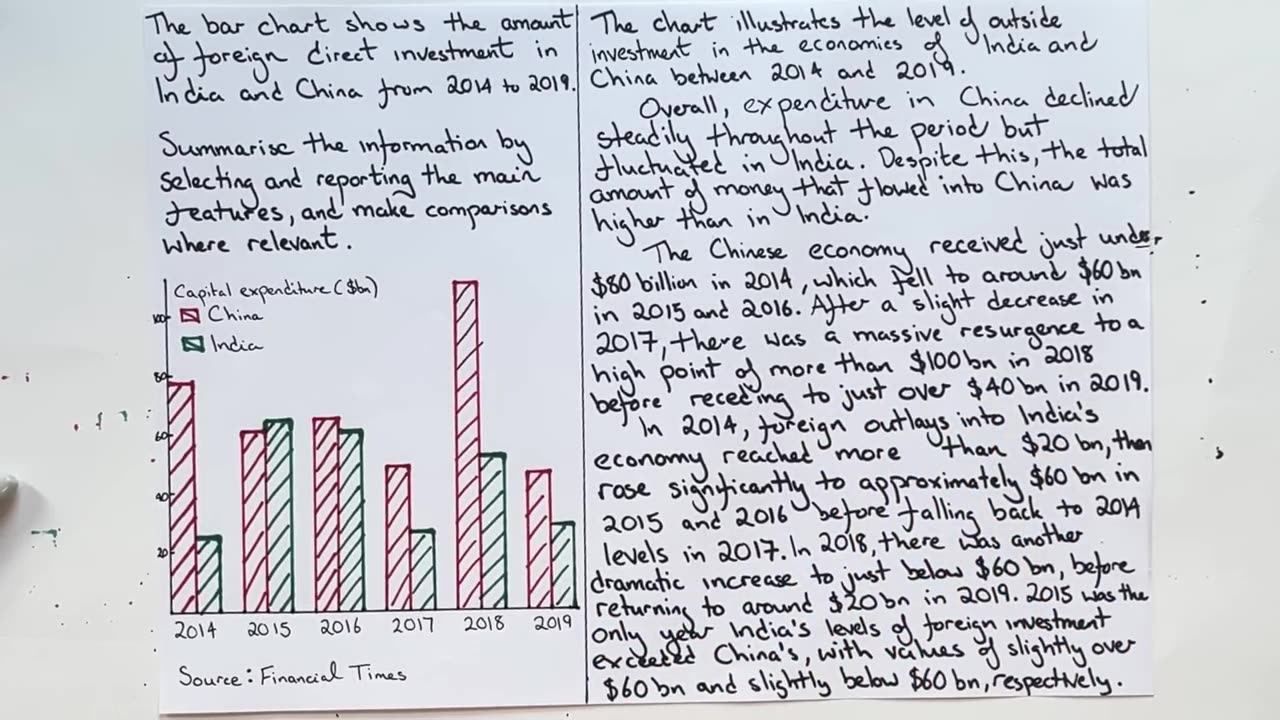 The bar chart shows the amount
of foreign direct investment in
India and China from 2014 to 2019.
Summarise the information by
selecting and reporting the main
features, and make comparisons
where relevant.
Capital expenditure ($bn)
China
India
100
80
60
40
20
2014 2015 2016 2017 2018 2019
Source: Financial Times
The chart illustrates the level of outside
investment in the economies of India and
China between 2014 and 2019.
Overall, expenditure in China declined
steadily throughout the period but
fluctuated in India. Despite this, the total
amount of money that flowed into China was
higher than in India.
The Chinese economy received just under
$80 billion in 2014, which fell to around $60bn
in 2015 and 2016. After a slight decrease in
2017, there was a massive resurgence to a
high point of more than $100bn in 2018
before receding to just over $40bn in 2019.
In 2014, foreign outlays into India's
economy reached more than $20bn, then
rose significantly to approximately $60bn in
2015 and 2016 before falling back to 2014
levels in 2017. In 2018, there was another
dramatic increase to just below $60bn, before
returning to around $20bn in 2019. 2015 was the
only year India's levels of foreign investment
exceeded China's, with values of slightly over
$60bn and slightly below $60bn, respectively.